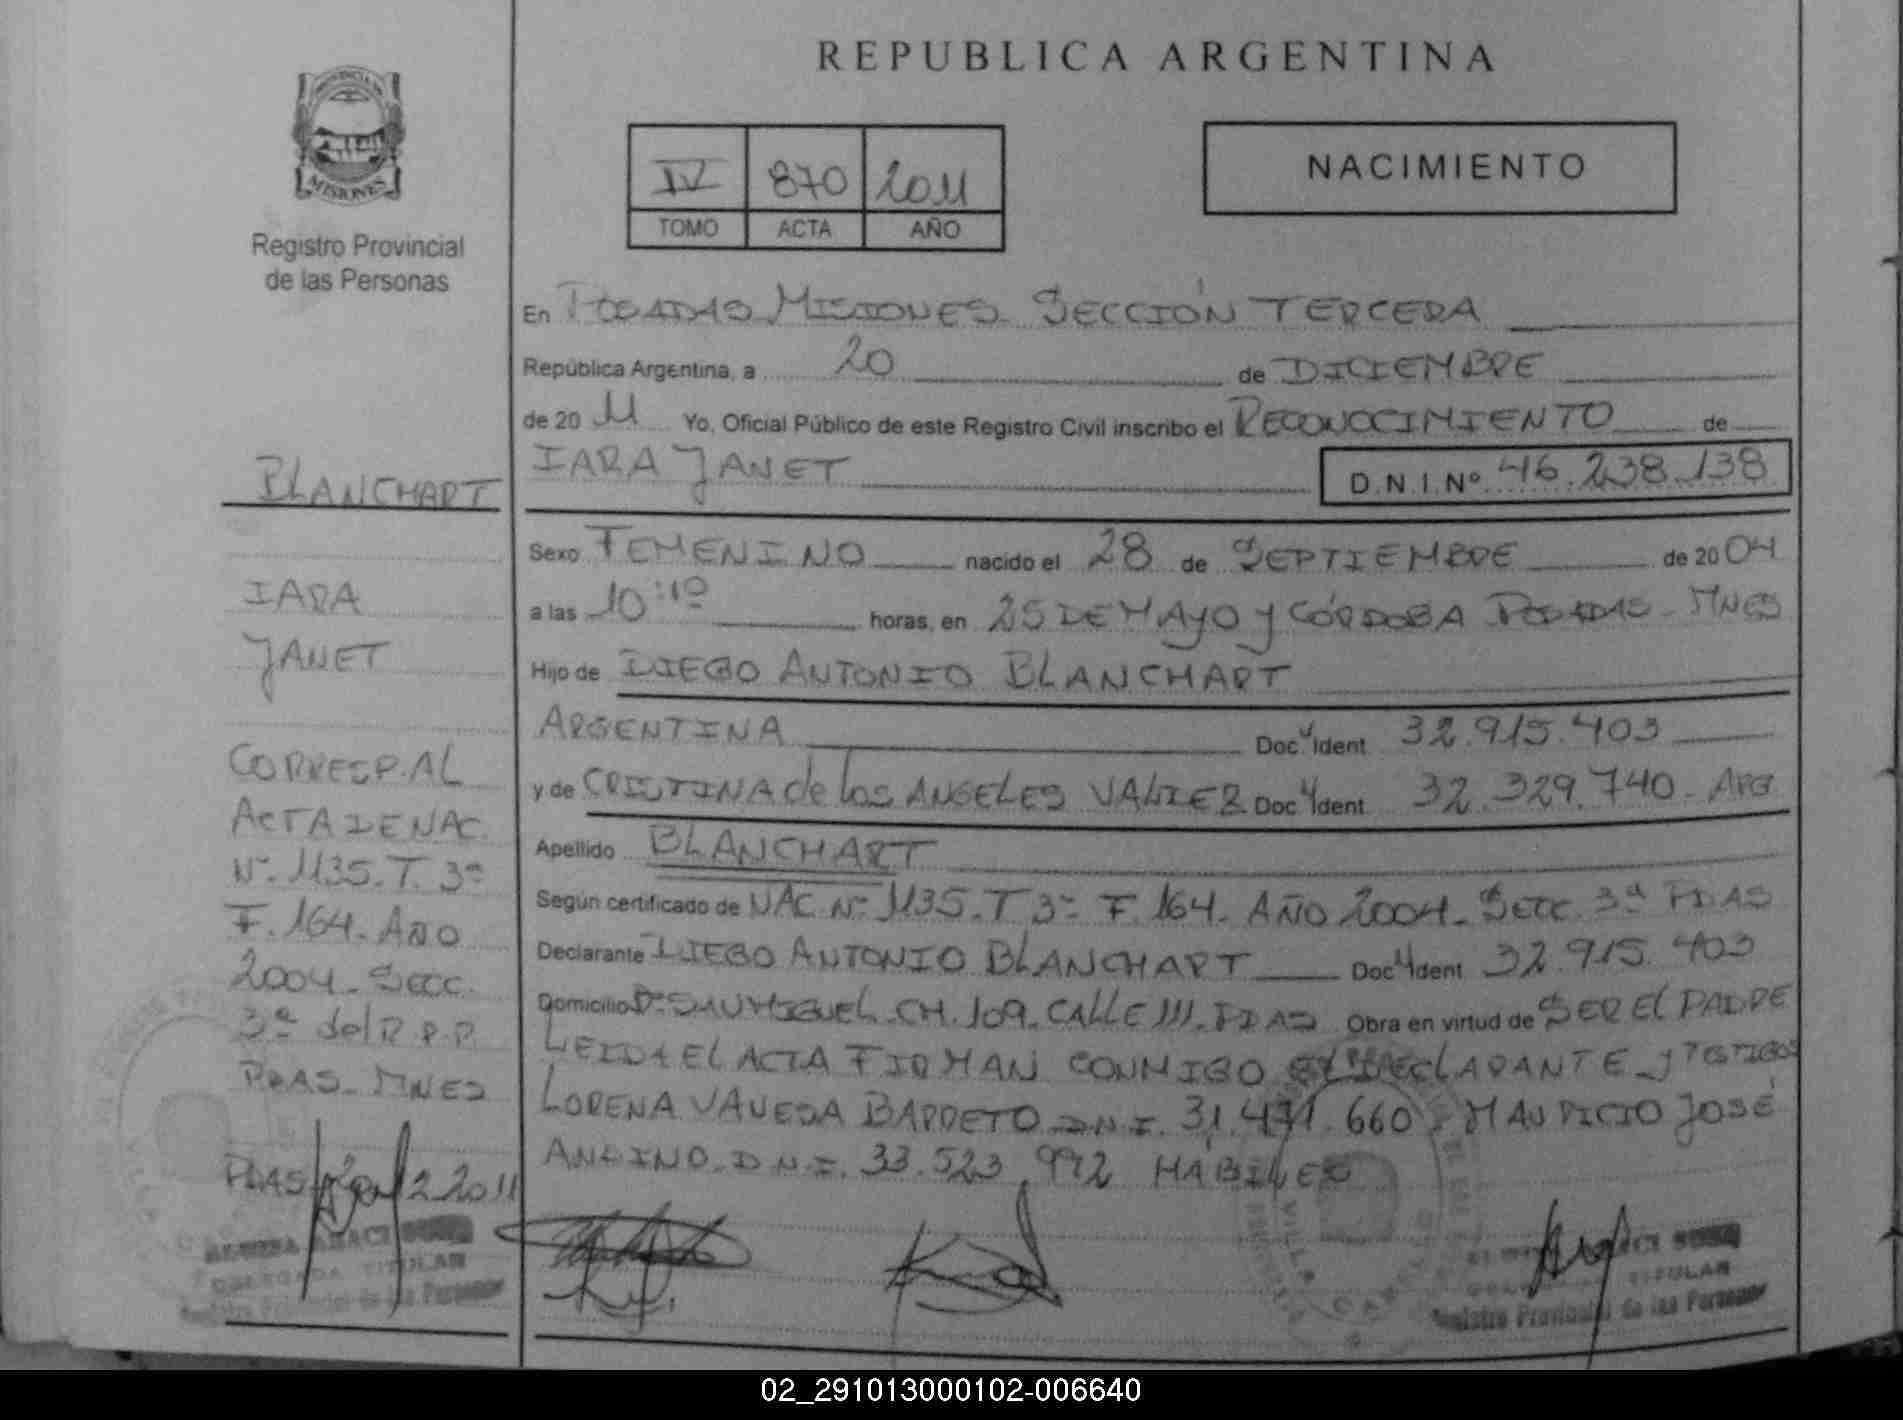 REPUBLICA ARGENTINA
PROVINCIA DE
MISIONES
Registro Provincial
de las Personas
IV 870 2011
TOMO ACTA AÑO
NACIMIENTO
En POSADAS MISIONES SECCIÓN TERCERA
República Argentina, a 20 de DICIEMBRE
de 2011 Yo, Oficial Público de este Registro Civil inscribo el RECONOCIMIENTO de
IARA JANET D.N.I.Nº 46.238.138
Sexo FEMENINO nacido el 28 de SEPTIEMBRE de 2004
a las 10:10 horas, en 25 DE MAYO y CÓRDOBA POSADAS - MNES
Hijo de DIEGO ANTONIO BLANCHART
ARGENTINA Doc. Ident. 32.915.403
y de CRISTINA de los ANGELES VALIER Doc. Ident. 32.329.740 - ARG.
Apellido BLANCHART
Según certificado de NAC. Nº 1135. T 3º F. 164. AÑO 2004 - SECC. 3ª PDAS
Declarante DIEGO ANTONIO BLANCHART Doc. Ident. 32.915.403
Domicilio Bº SAN MIGUEL. CH. 109. CALLE 111. PDAS Obra en virtud de SER EL PADRE
LEIDA EL ACTA FIRMAN CONMIGO EL DECLARANTE y TESTIGOS
LORENA VANESA BARRETO D.N.I. 31.471.660 y MAURICIO JOSÉ
D.N.I. 33.523.992 HÁBILES
BLANCHART
IARA
JANET
CORRESP. AL
ACTA DE NAC.
Nº 1135. T. 3º
F. 164. AÑO
2004 - SECC.
3ª del R.P.P.
PDAS - MNES
PDAS 20 12 2011
DELEGADA TITULAR
Registro Provincial de las Personas
TITULAR
Registro Provincial de las Personas
02_291013000102-006640